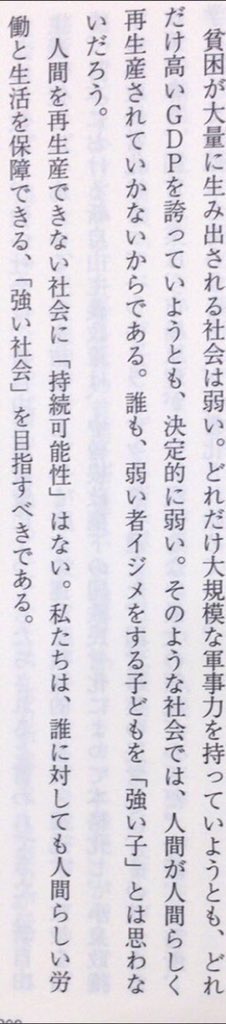 貧困が大量に生み出される社会は弱い。どれだけ大規模な軍事力を持っていようとも、どれ
だけ高いGDPを誇っていようとも、決定的に弱い。そのような社会では、人間が人間らしく
再生産されていかないからである。誰も、弱い者イジメをする子どもを「強い子」とは思わな
いだろう。
　人間を再生産できない社会に「持続可能性」はない。私たちは、誰に対しても人間らしい労
働と生活を保障できる、「強い社会」を目指すべきである。